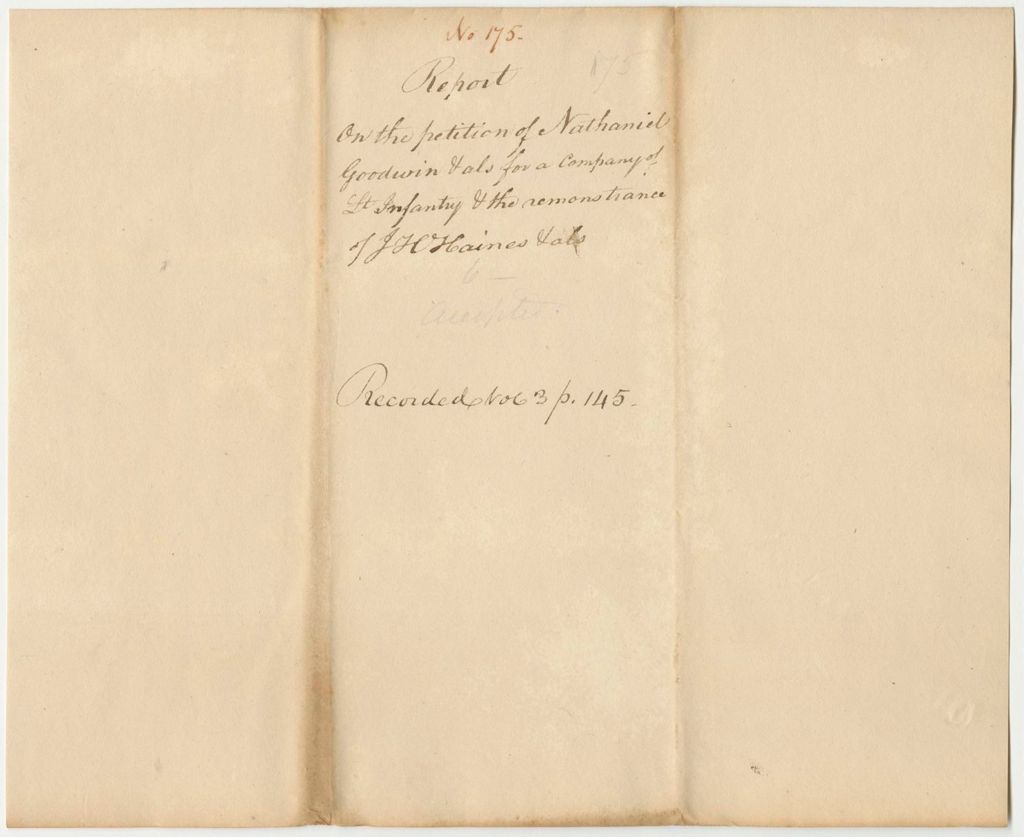 No 175-
175
Report
On the petition of Nathaniel
Goodwin & als for a Company of
Lt Infantry & the remonstrance
of J H Haines & als
6 —
Accepted.
Recorded Vol 3 p. 145-